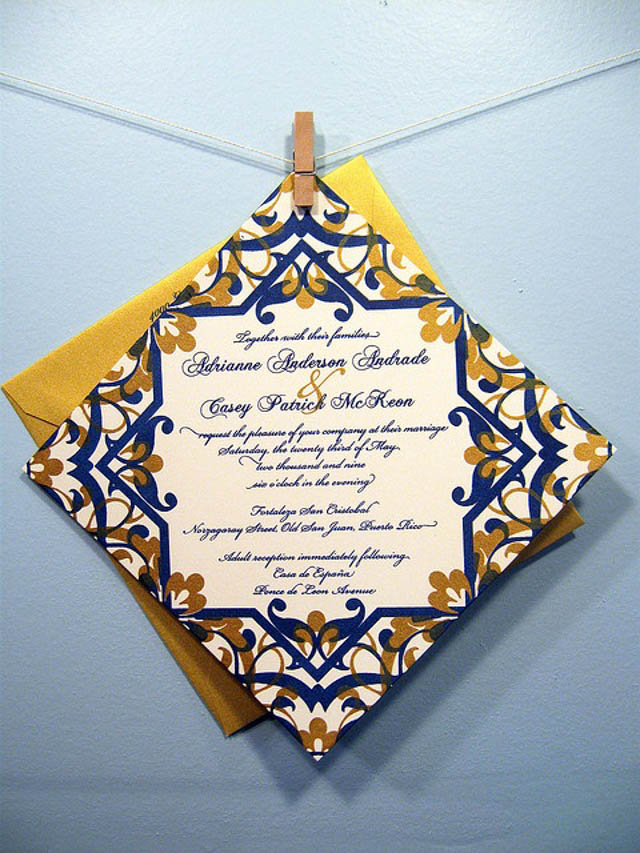 Together with their families
Adrianne Anderson Andrade
&
Casey Patrick McKeon
request the pleasure of your company at their marriage
Saturday, the twenty third of May
two thousand and nine
six o'clock in the evening
Fortaleza San Cristobal
Norzagaray Street, Old San Juan, Puerto Rico
Adult reception immediately following
Casa de España
Ponce de Leon Avenue
1000